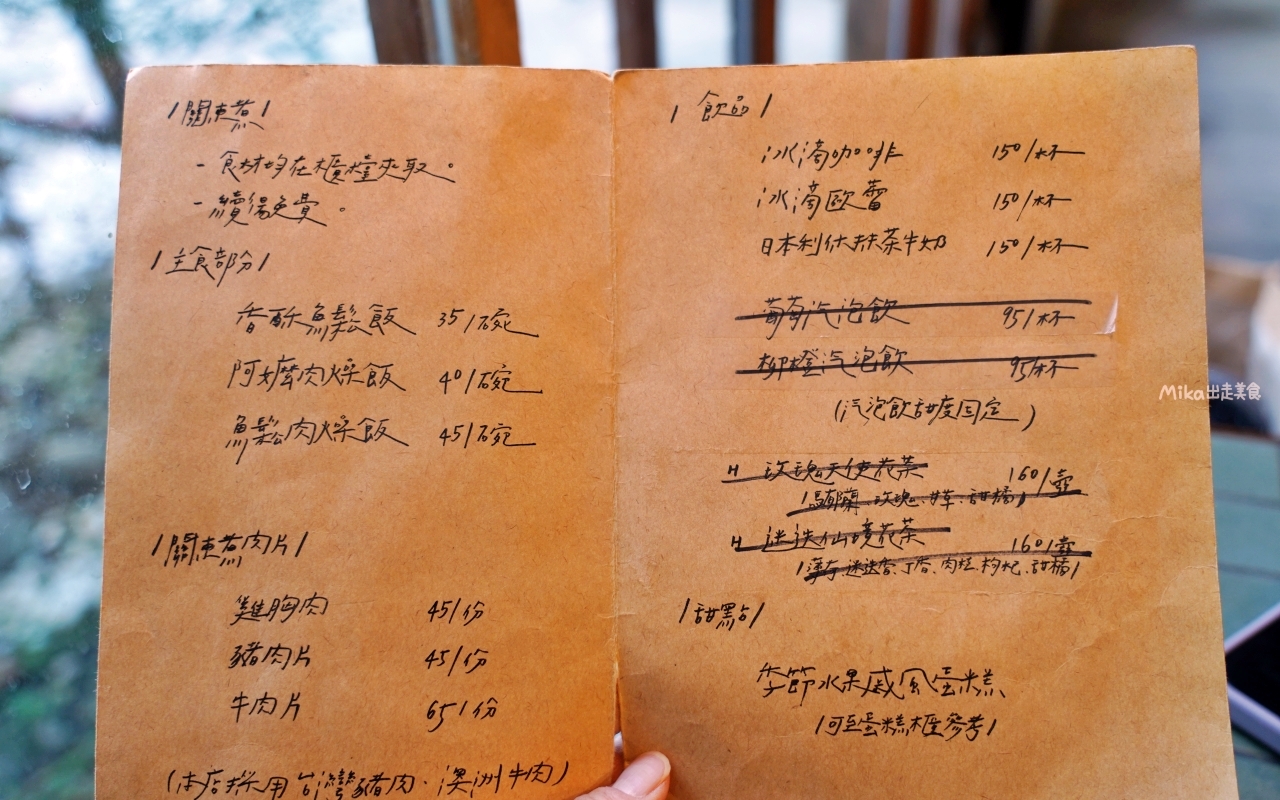 /關東煮/
- 食材均在櫃檯夾取。
- 續湯免費。
/主食部分/
香酥魚鬆飯 35/碗
阿嬤肉燥飯 40/碗
魚鬆肉燥飯 45/碗
/關東煮肉片/
雞胸肉 45/份
豬肉片 45/份
牛肉片 65/份
(本店採用台灣豬肉、澳洲牛肉)
/飲品/
冰滴咖啡 150/杯
冰滴歐蕾 150/杯
日本利休抹茶牛奶 150/杯
葡萄汽泡飲 95/杯
柳橙汽泡飲 95/杯
(汽泡飲甜度固定)
H 玫瑰天使花茶 160/壺
/馬鞭蘭、玫瑰、甘草、甜橘/
H 迷迭仙境花茶 160/壺
/薄荷、迷迭香、丁香、肉桂、枸杞、甜橘/
/甜點/
季節水果戚風蛋糕
/可至蛋糕櫃參考/
Mika出走美食